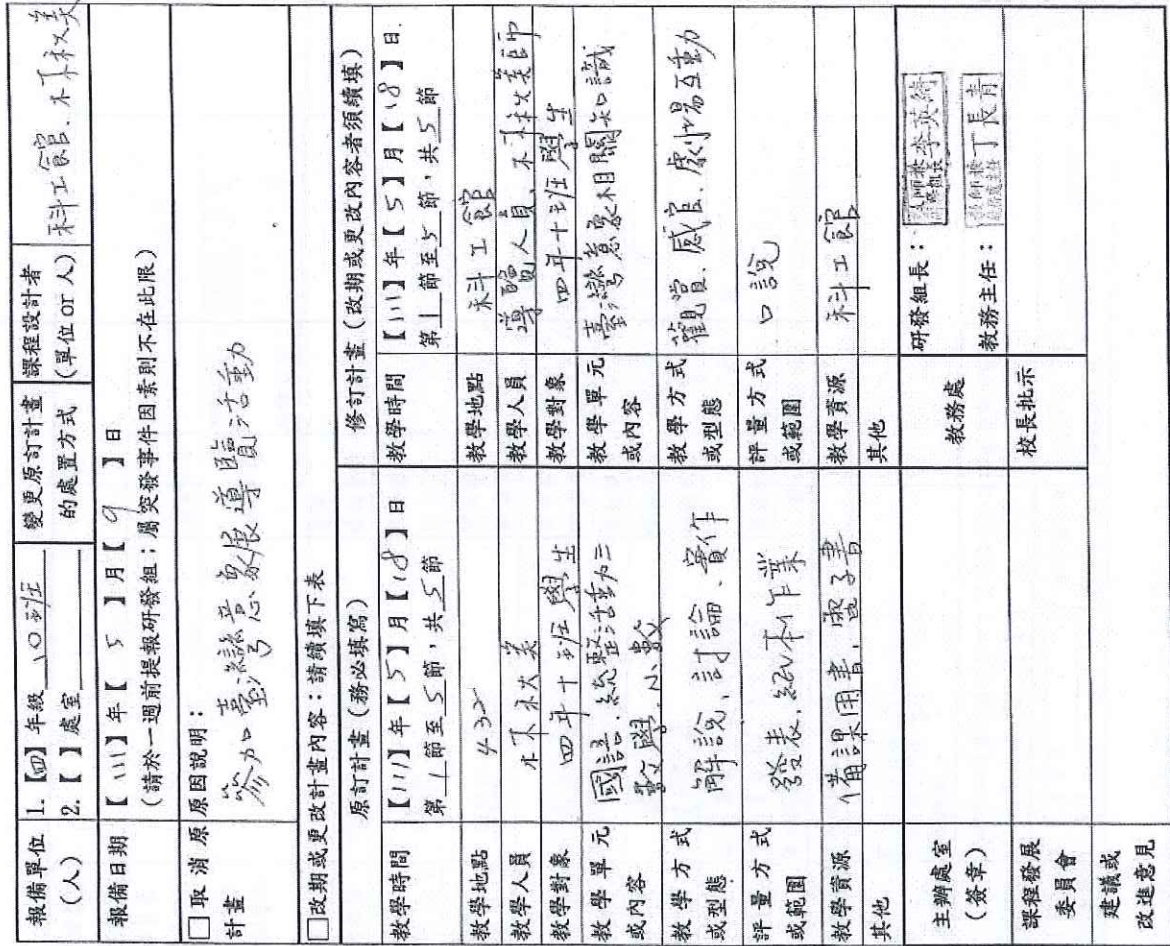 報備單位（人）
1.【四】年級 10班
2.【 】處室
變更原訂計畫的處置方式
課程設計者（單位 or 人）
科工館、林秋美
報備日期
【111】年【5】月【9】日
（請於一週前提報研發組；屬突發事件因素則不在此限）
□取消原計畫
原因說明：
參加臺灣意象展導覽活動
□改期或更改計畫內容：請續填下表
原訂計畫（務必填寫）
修訂計畫（改期或更改內容者須續填）
教學時間
【111】年【5】月【18】日
第1節至5節，共5節
教學時間
【111】年【5】月【18】日
第1節至5節，共5節
教學地點
432
教學地點
科工館
教學人員
林秋美
教學人員
導覽人員、林秋美師
教學對象
四年十班學生
教學對象
四年十班學生
教學單元或內容
國語、統整活動三
數學、小數
教學單元或內容
臺灣意象相關知識
教學方式或型態
解說、討論、實作
教學方式或型態
觀賞、感官、劇場互動
評量方式或範圍
發表、紙本作業
評量方式或範圍
口說
教學資源
備課用書、電子書
教學資源
科工館
其他
其他
主辦處室（簽章）
教務處
研發組長：
李英綺
教務主任：
丁長青
課程發展委員會
校長批示
建議或改進意見